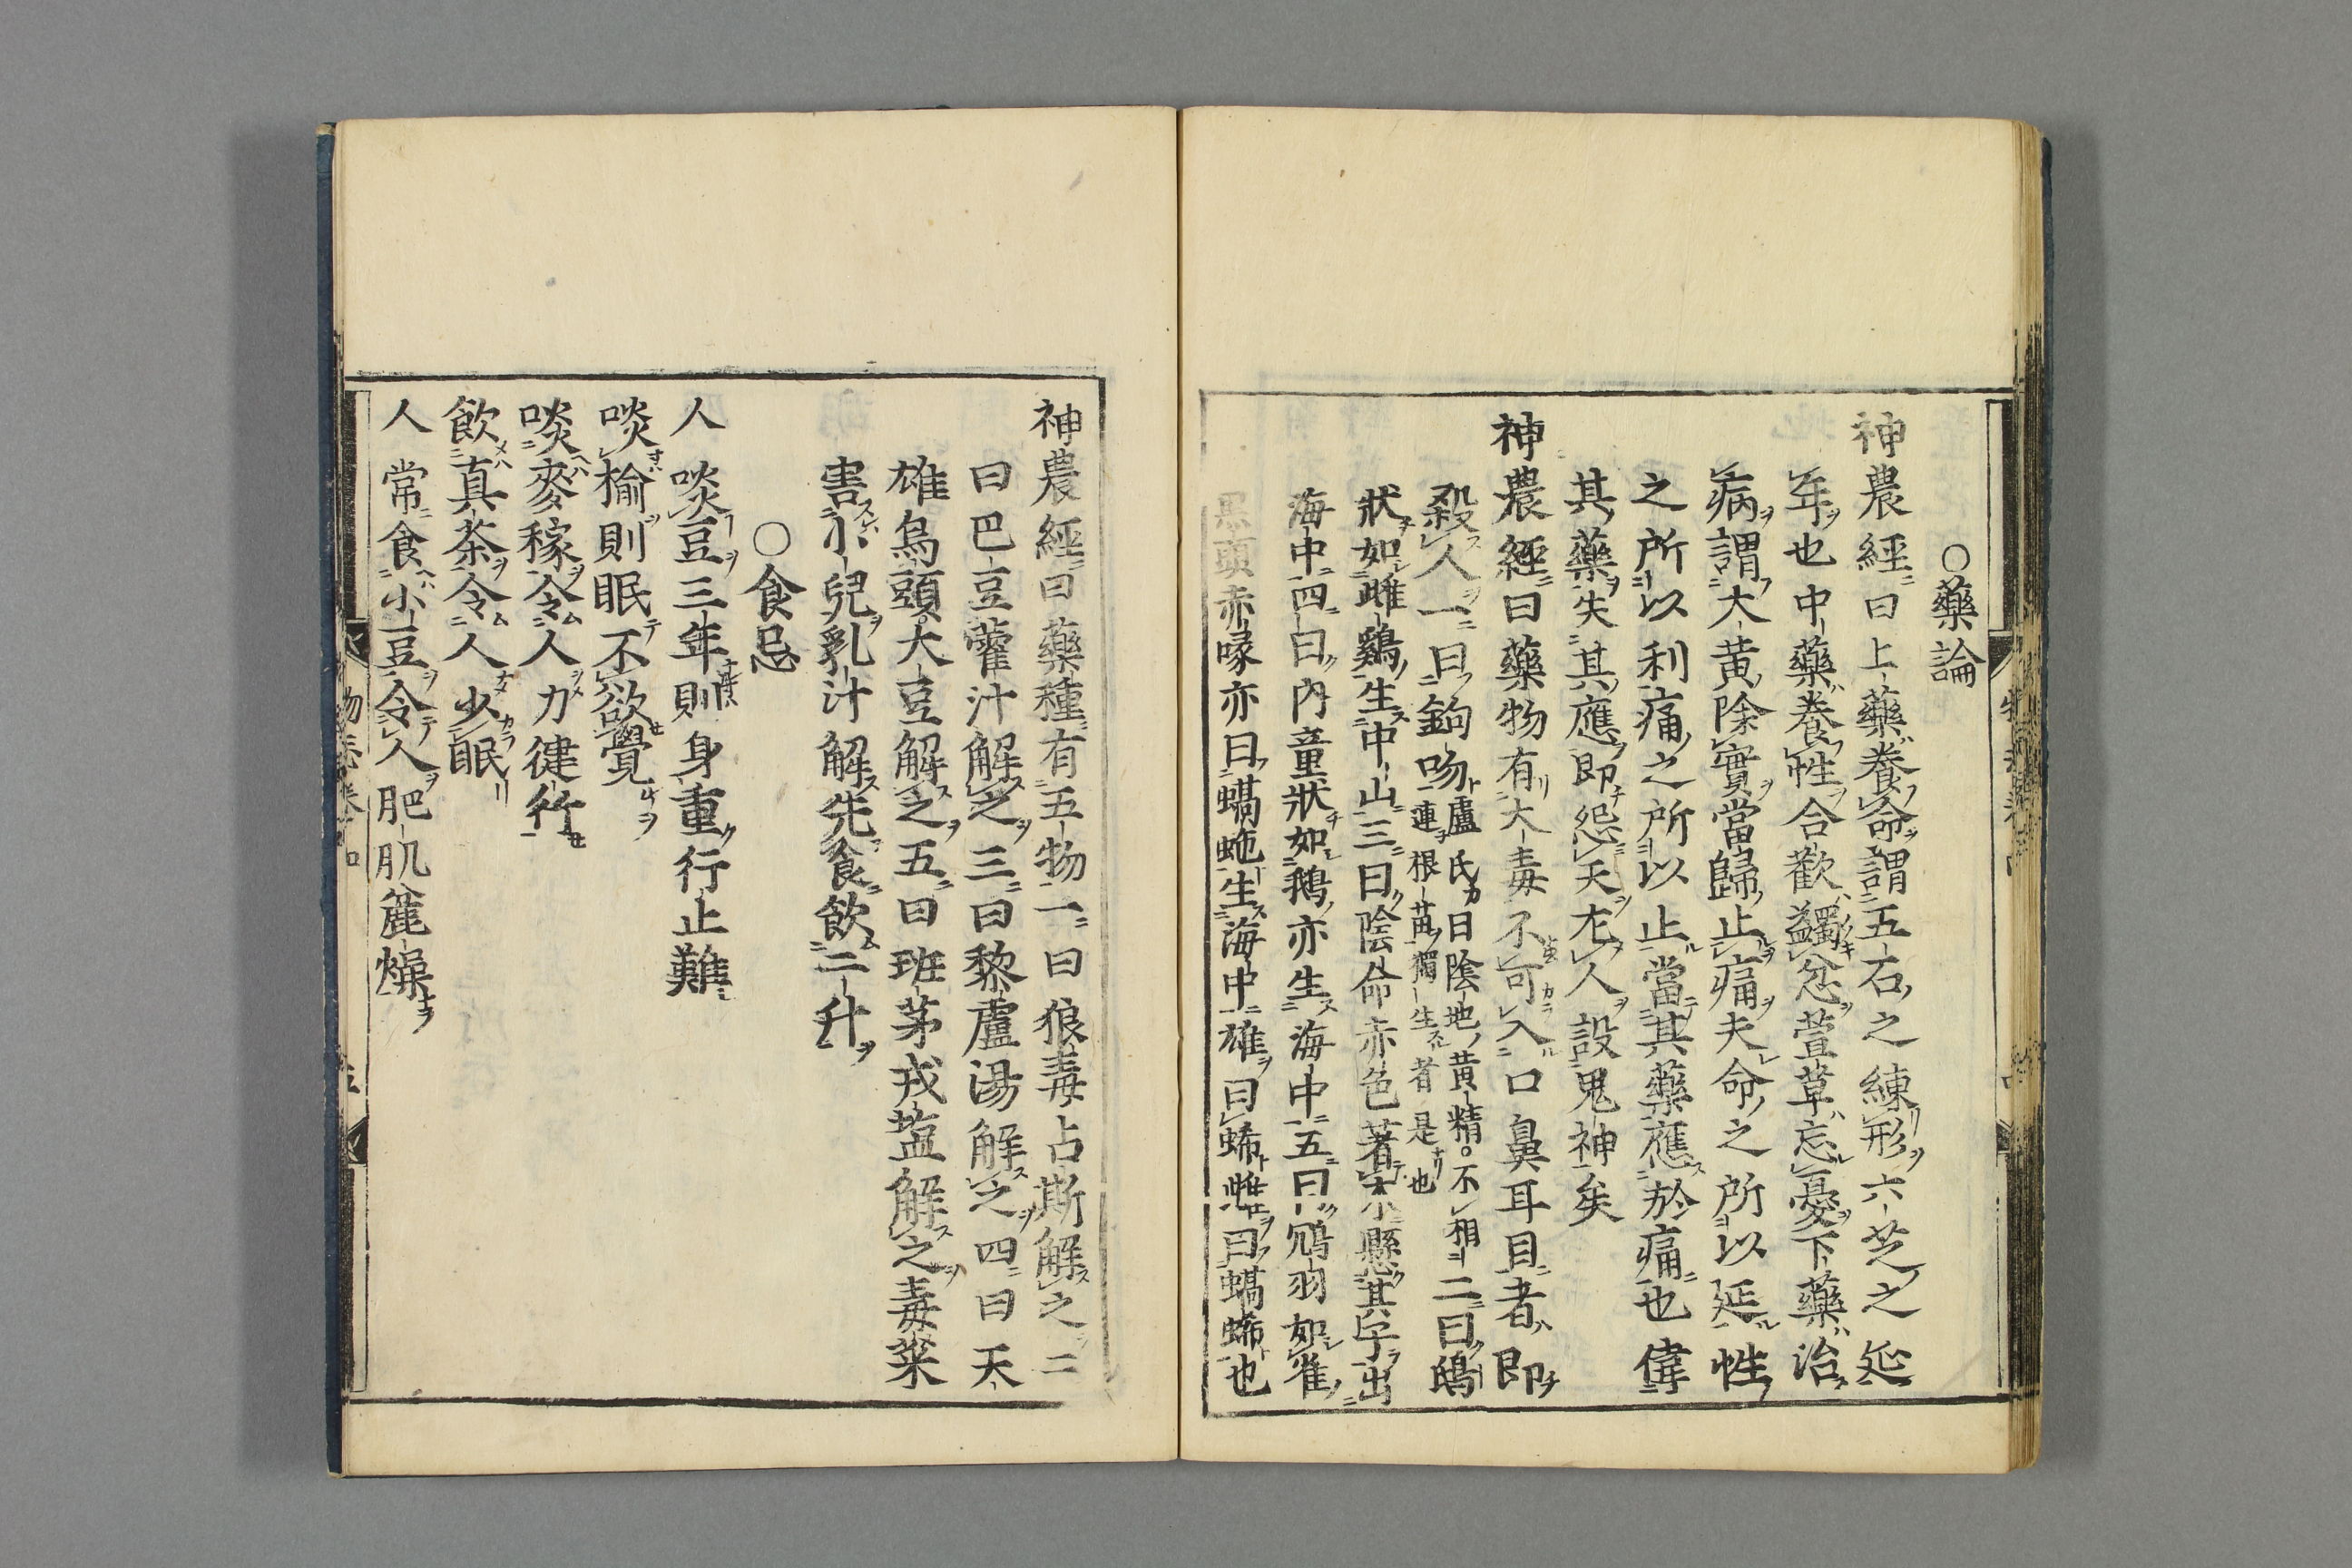 ○藥論
神農經曰上藥養命謂五石之練形六芝之延
年也中藥養性合歡蠲忿萱草忘憂下藥治
病謂大黄除實當歸止痛夫命之所以延性
之所以利痛之所以止當其藥應於痛也偉
其藥失其應即怨天尤人設鬼神矣
神農經曰藥物有大毒不可入口鼻耳目者即
殺人一曰鉤吻
盧氏曰陰地黄精不相
連根苗獨生者是也
二曰鴟
狀如雌鷄生中山三曰陰命赤色著木懸其子出
海中四曰内童狀如鵝亦生海中五曰鴆羽如雀
黒頭赤喙亦曰螭蜍生海中雄曰蜍雌曰螭蜍也
神農經曰藥種有五物一曰狼毒占斯解之二
曰巴豆藿汁解之三曰黎盧湯解之四曰天
雄烏頭大豆解之五曰班茅戎塩解之毒菜
害小兒乳汁解先食飲二升
○食忌
人啖豆三年則身重行止難
啖榆則眠不欲覺
啖麥稼令人力健行
飲真茶令人少眠
人常食小豆令人肥肌麁燥